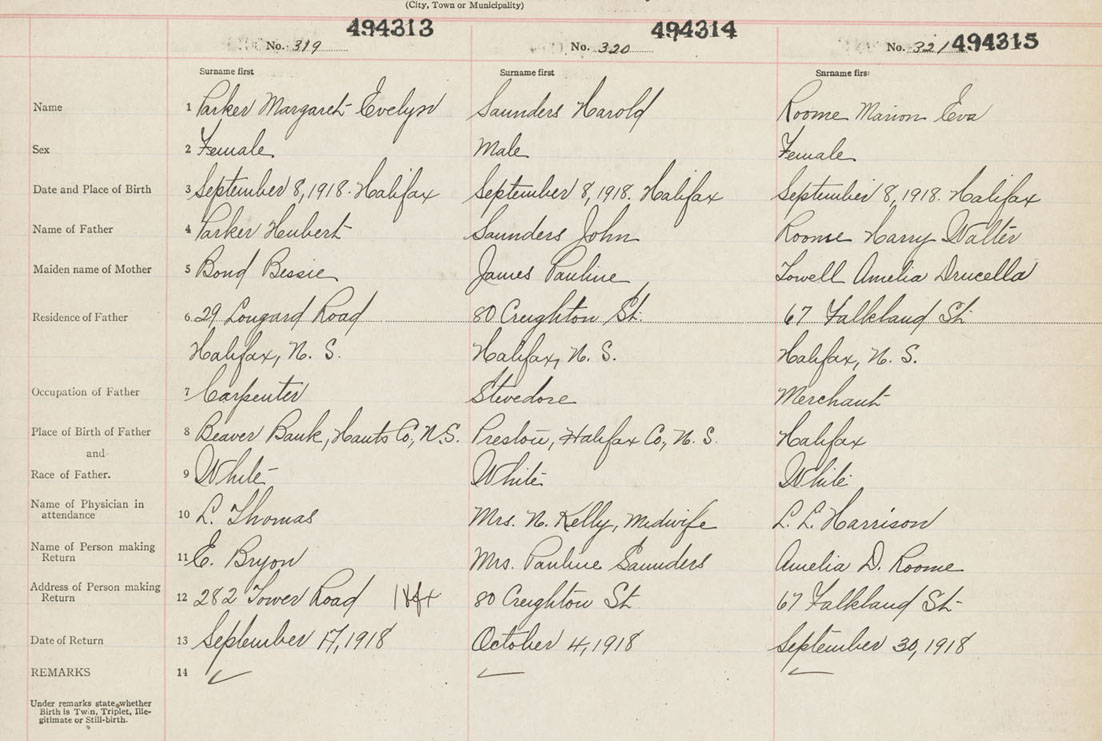 (City, Town or Municipality)
494313 494314 494315
No. 319 No. 320 No. 321
Surname first Surname first Surname first
Name 1 Parker Margaret Evelyn Saunders Harold Roome Marion Eva
Sex 2 Female Male Female
Date and Place of Birth 3 September 8, 1918. Halifax September 8, 1918. Halifax September 8, 1918. Halifax
Name of Father 4 Parker Hubert Saunders John Roome Harry Walter
Maiden name of Mother 5 Bond Bessie James Pauline Lowell Amelia Drucella
Residence of Father 6 29 Longard Road 80 Creighton St. 67 Falkland St.
Halifax, N. S. Halifax, N. S. Halifax, N. S.
Occupation of Father 7 Carpenter Stevedore Merchant
Place of Birth of Father 8 Beaver Bank, Hants Co, N.S. Preston, Halifax Co, N. S. Halifax
and
Race of Father. 9 White White White
Name of Physician in
attendance 10 L. Thomas Mrs. N. Kelly, Midwife L. L. Harrison
Name of Person making
Return 11 E. Bryon Mrs. Pauline Saunders Amelia D. Roome
Address of Person making
Return 12 282 Tower Road Hfx 80 Creighton St 67 Falkland St.
Date of Return 13 September 17, 1918 October 4, 1918 September 30, 1918
REMARKS 14
Under remarks state whether
Birth is Twin, Triplet, Ille-
gitimate or Still-birth.